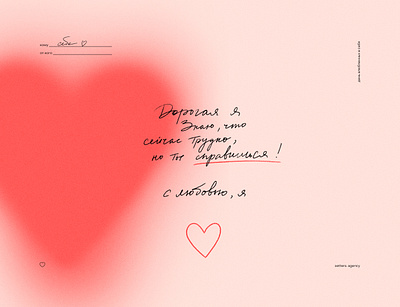 кому себе
от кого
Дорогая я
Знаю, что
сейчас трудно,
но ты справишься!
с любовью, я